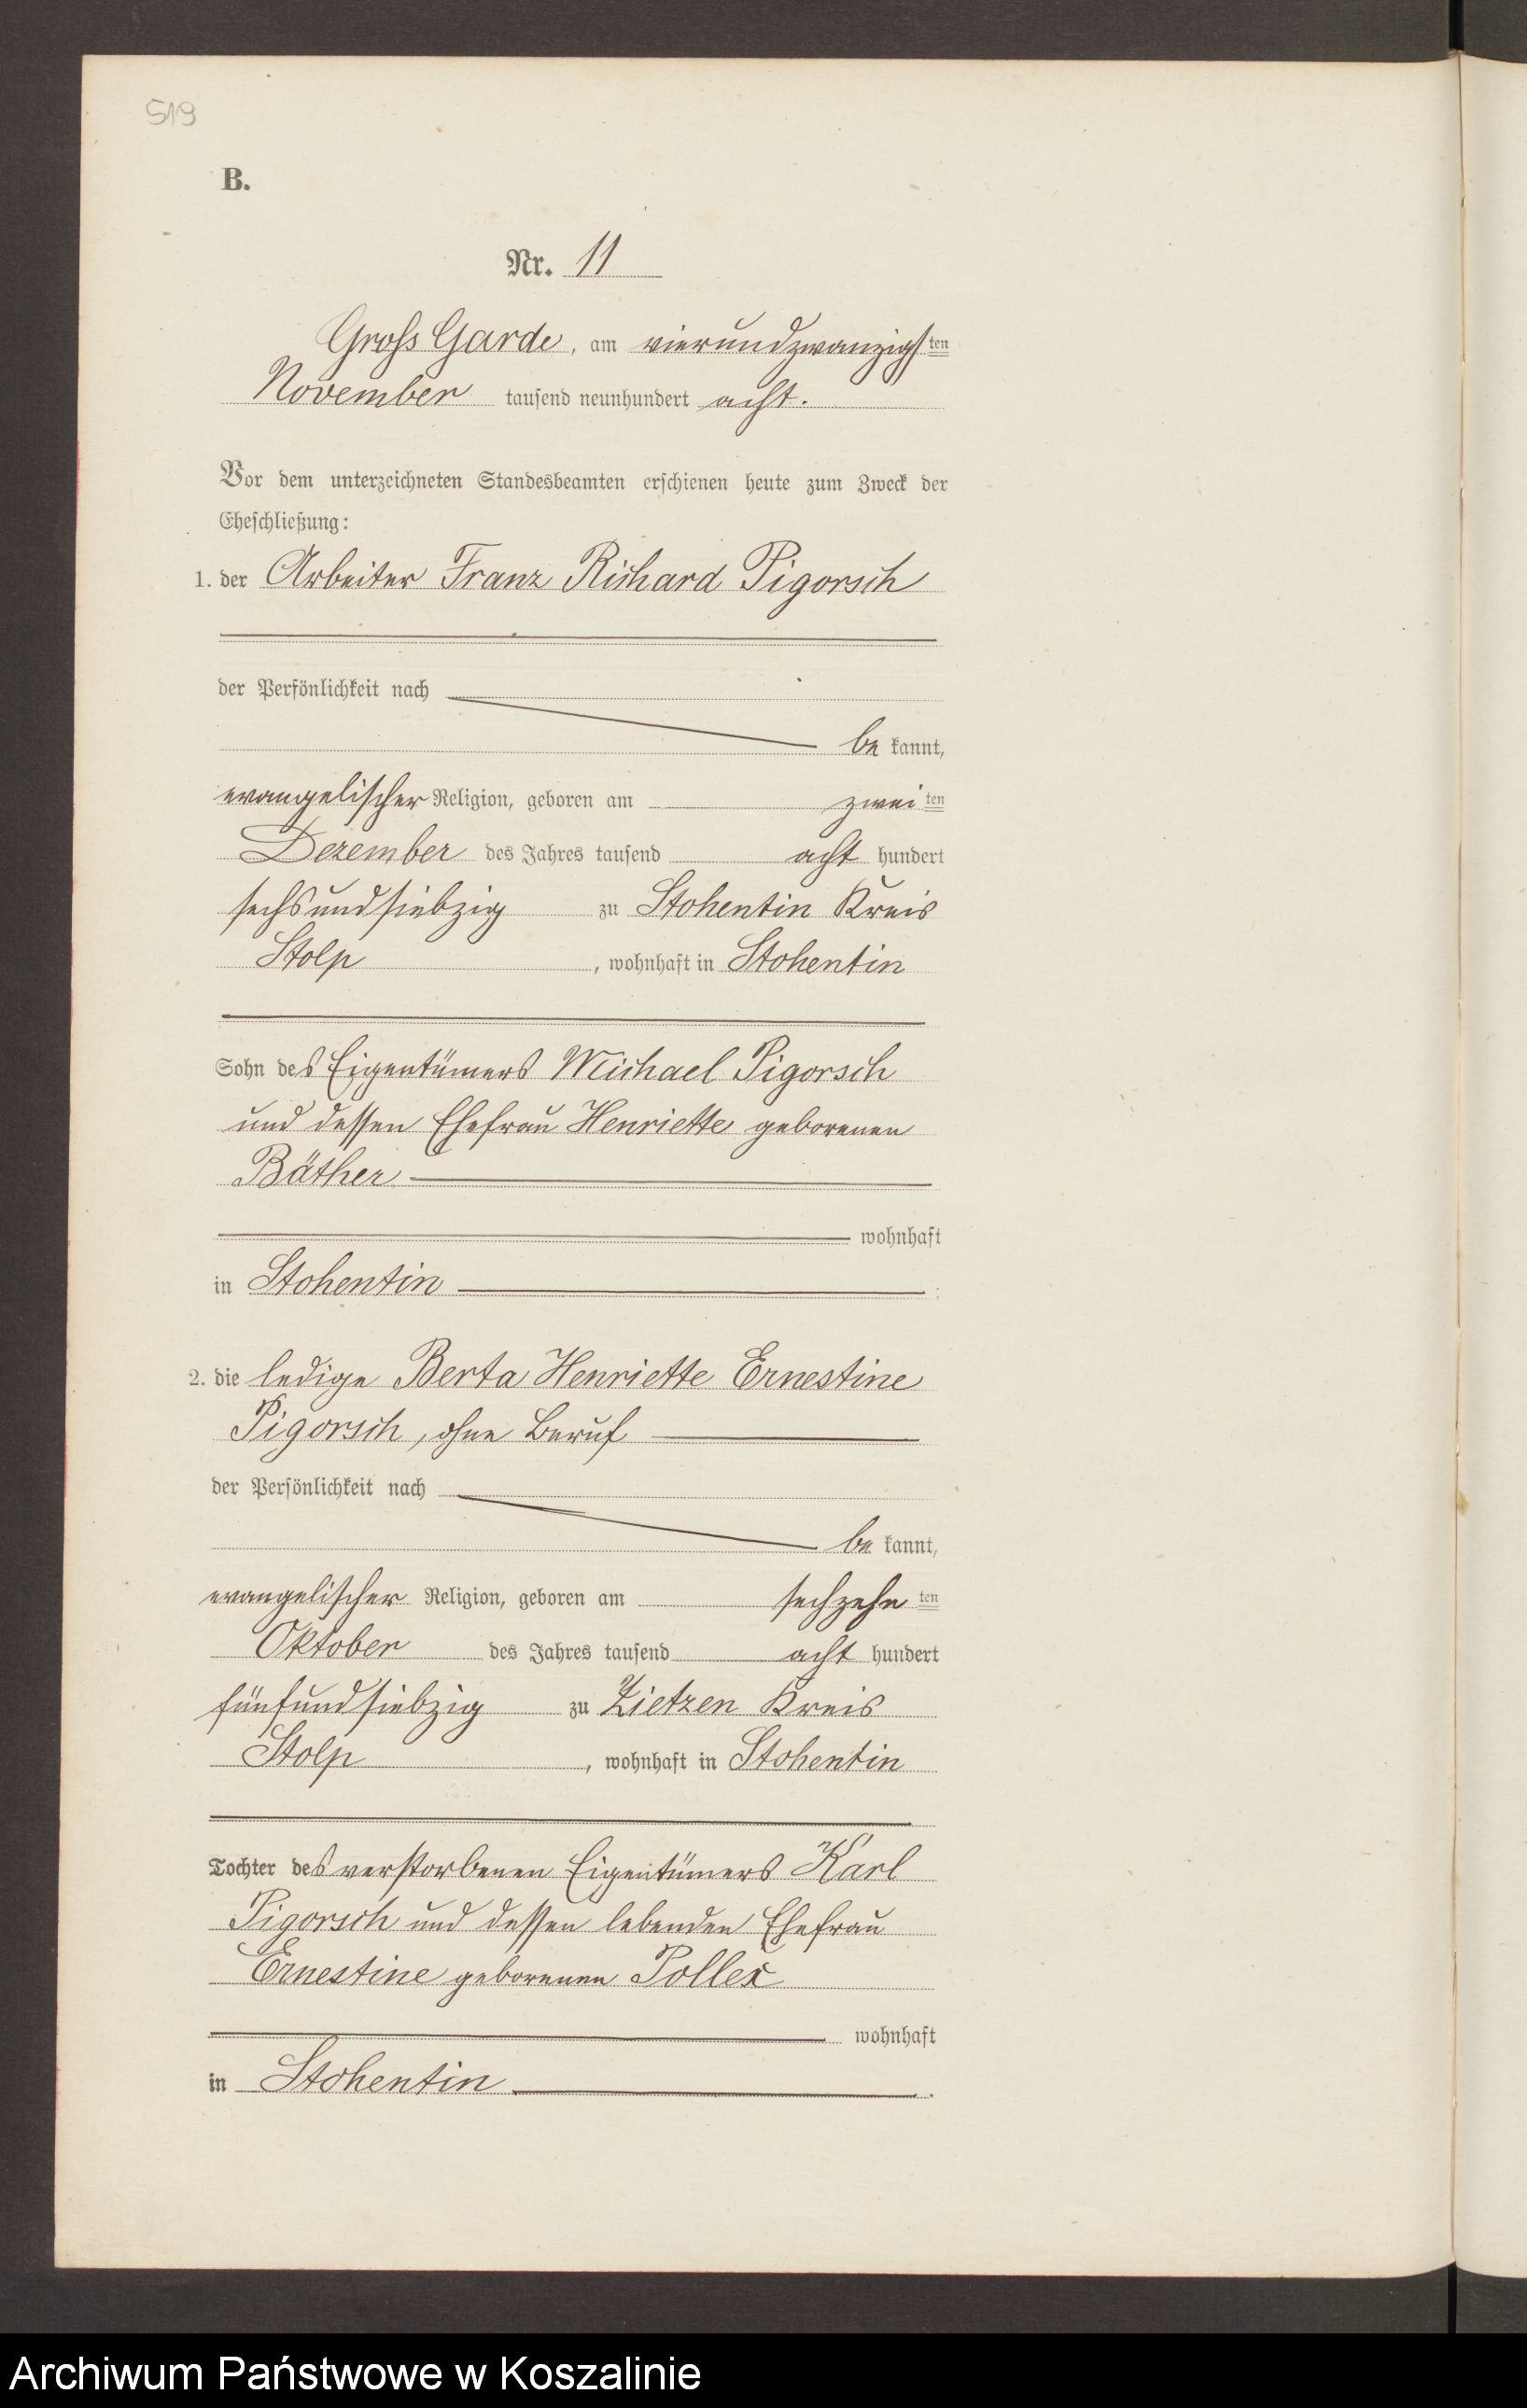 519
B.
Nr. 11
Gross Garde, am vierundzwanzigsten
November tausend neunhundert acht.
Vor dem unterzeichneten Standesbeamten erschienen heute zum Zweck der
Eheschließung:
1. der Arbeiter Franz Richard Pigorsch
der Persönlichkeit nach
be kannt,
evangelischer Religion, geboren am zwei ten
Dezember des Jahres tausend acht hundert
sechsundsiebzig zu Stohentin Kreis
Stolp, wohnhaft in Stohentin
Sohn des Eigentümers Michael Pigorsch
und dessen Ehefrau Henriette geborenen
Bäther
wohnhaft
in Stohentin
2. die ledige Berta Henriette Ernestine
Pigorsch, ohne Beruf
der Persönlichkeit nach
be kannt,
evangelischer Religion, geboren am sechzehn ten
Oktober des Jahres tausend acht hundert
fünfundsiebzig zu Zietzen Kreis
Stolp, wohnhaft in Stohentin
Tochter des verstorbenen Eigentümers Karl
Pigorsch und dessen lebenden Ehefrau
Ernestine geborenen Pollex
wohnhaft
in Stohentin.
Archiwum Państwowe w Koszalinie